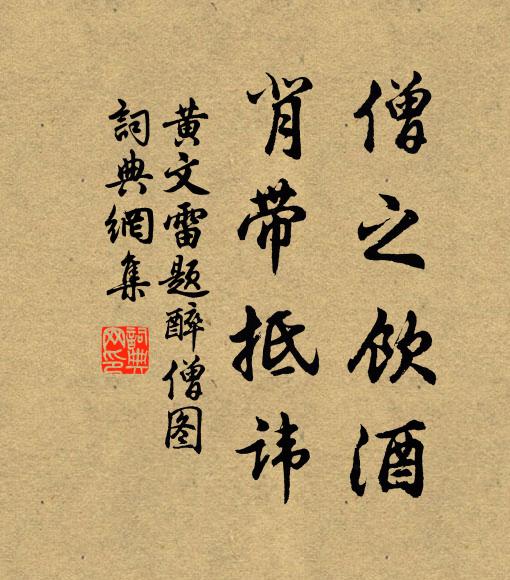 僧之飲酒
肖带抵讳
黄文雷题醉僧图
詞典網集
詞典网印